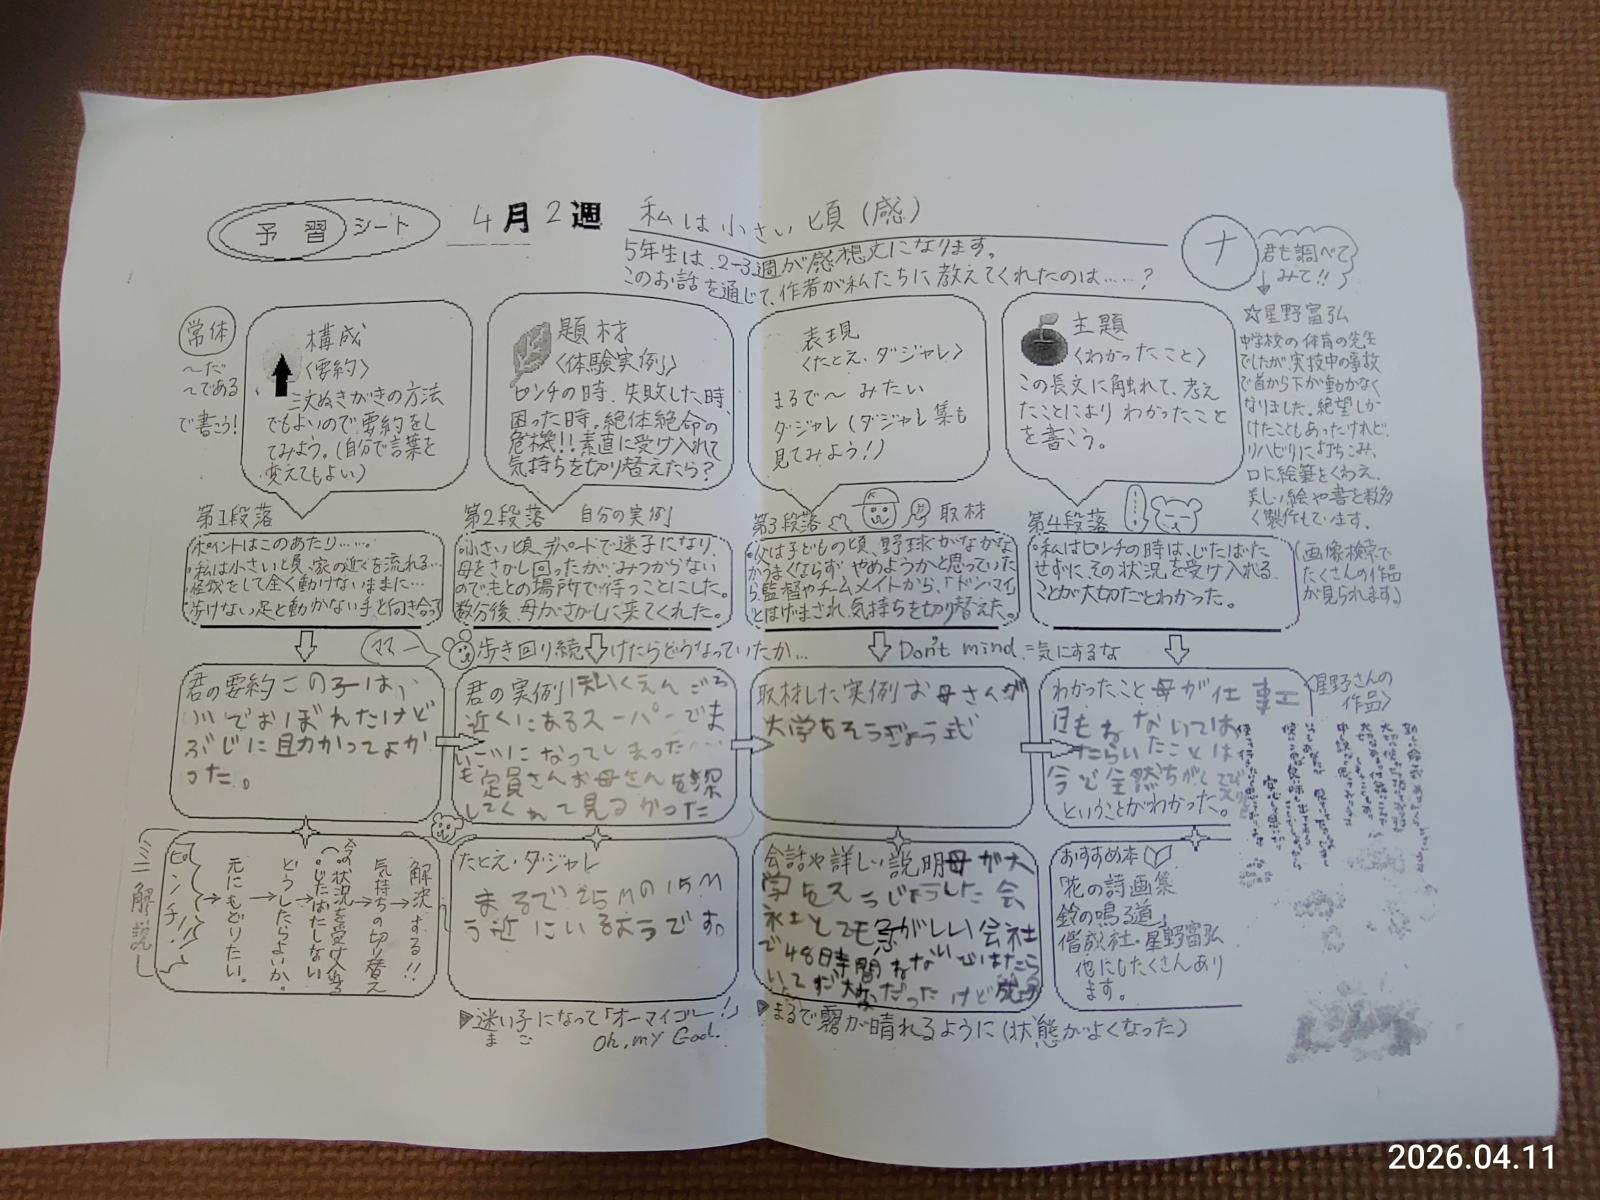 予習シート
4月2週
私は小さい頃(感)
5年生は、2-3週が感想文になります。
このお話を通じて、作者が私たちに教えてくれたのは……?
ナ
君も調べて
みて!!
常体
〜だ
〜である
で書こう!
構成
〈要約〉
三文ぬきがきの方法
でもよいので要約をし
てみよう。(自分で言葉を
変えてもよい)
題材
〈体験実例〉
ピンチの時、失敗した時、
困った時。絶体絶命の
危機!!素直に受け入れて
気持ちを切り替えたら?
表現
〈たとえ・ダジャレ〉
まるで〜みたい
ダジャレ(ダジャレ集も
見てみよう!)
主題
〈わかったこと〉
この長文に触れて、考え
たことにより わかったこと
を書こう。
☆星野富弘
中学校の体育の先生
でしたが、実技中の事故
で首から下が動かなく
なりました。絶望しか
けたこともあったけれど、
リハビリに打ちこみ、
口に絵筆をくわえ、
美しい絵や書を数多
く製作もています。
(画像検索で
たくさんの作品
が見られます。)
第1段落
ポイントはこのあたり……。
・私は小さい頃、家の近くを流れる…
・怪我をして全く動けないままに…
・歩けない足と動かない手と向き合う
第2段落 自分の実例
・小さい頃、デパートで迷子になり、
母をさがし回ったが、みつからない
のでもとの場所で待つことにした。
数分後、母がさがしに来てくれた。
第3段落 取材
・父は子どもの頃、野球がなかな
かうまくならず やめようかと思っていた
ら監督やチームメイトから、「ドンマイ」
とはげまされ、気持ちを切り替えた。
第4段落
・私はピンチの時は、じたばた
せずに、その状況を受け入れる
ことが大切だとわかった。
ママー
歩き回り続けたらどうなっていたか…
Don't mind.=気にするな
君の要約 この子は、
川でおぼれたけど
ぶじに助かってよか
った。
君の実例 ほいくえんごろ
近くにあるスーパーでま
いごになってしまった
も定員さんお母さんを探
してくれて見るかった
取材した実例 お母さんが
大学をそうぎょう式
わかったこと 母が仕事エ
日もねないては
たらいたことは
今と全然ちがくて
ということがわかった。
〈星野さんの
作品〉
ミニ解説
ピンチ!
元にもどりたい。
どうしたらよいか。
・じたばたしない
・今の状況を受け入れる
気持ちの切り替え
解決する!!
たとえ・ダジャレ
まるで25Mの15M
う近にいるようです。
会話や詳しい説明 母が大
学をそつぎょうした会
社とても急がしい会社
で48時間ねないではたら
いてず大変だったけど成功
おすすめ本
「花の詩画集
鈴の鳴る道」
偕成社・星野富弘
他にもたくさんあり
ます。
▶迷い子になって「オーマイゴー!」
ま ご
Oh, my God.
▶まるで霧が晴れるように(状態がよくなった)
2026.04.11